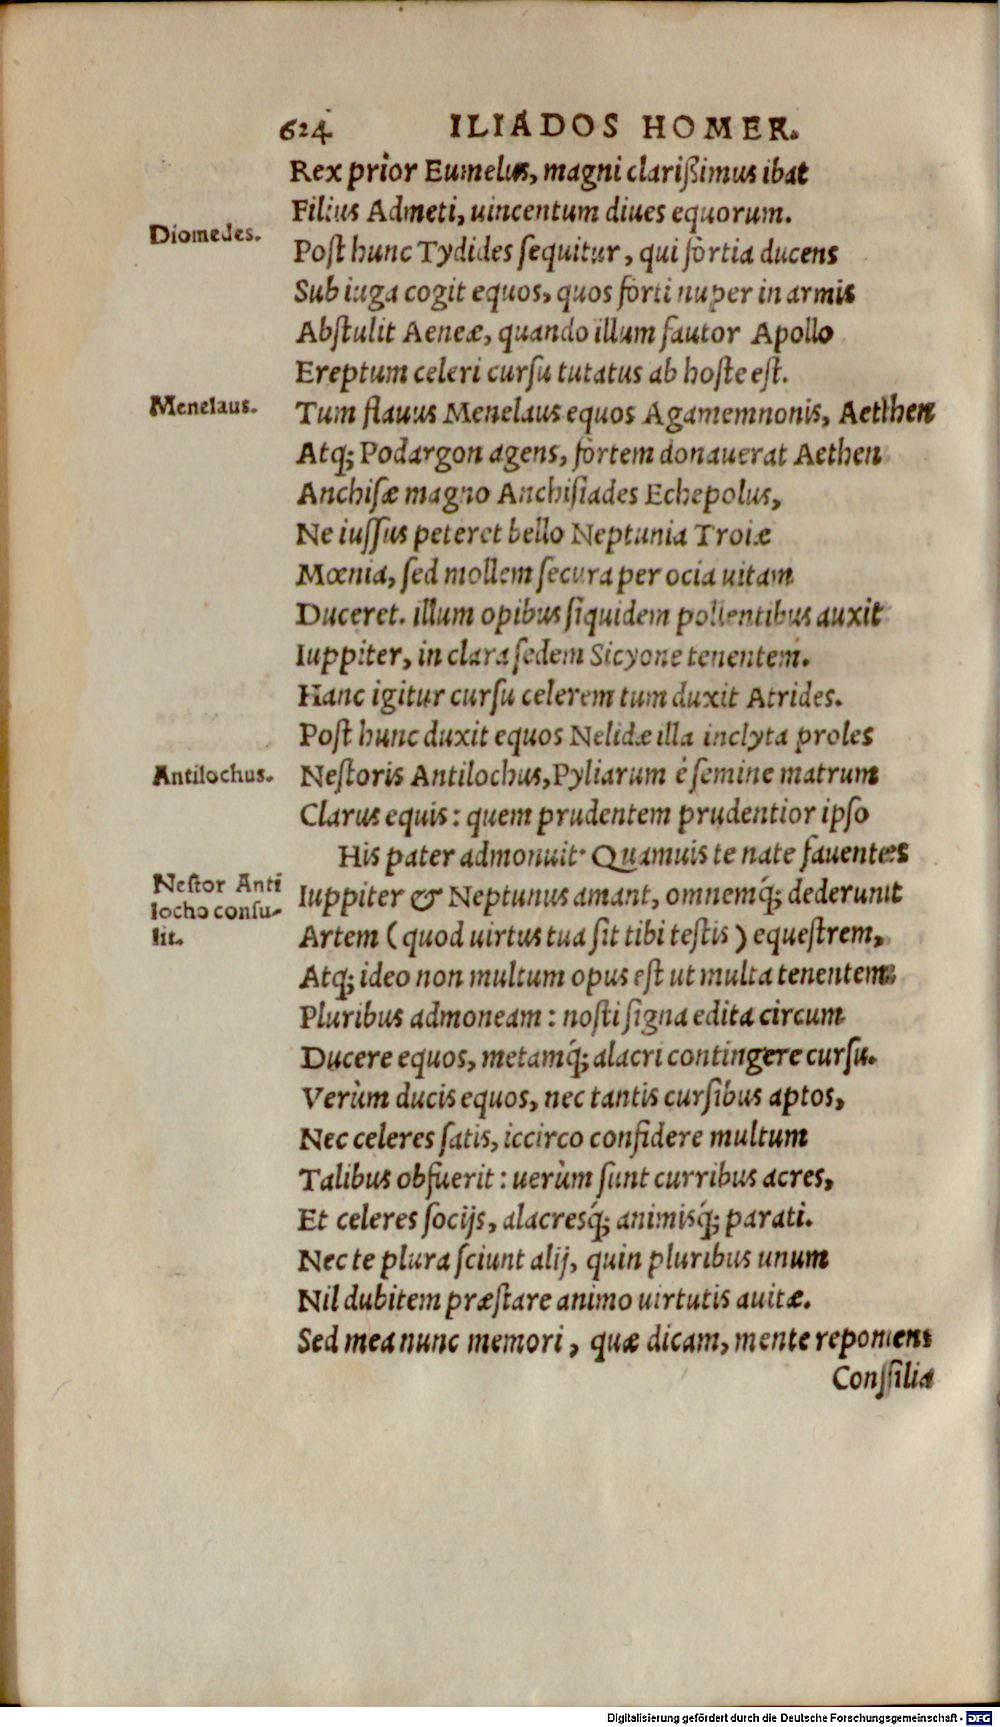 624 ILIADOS HOMER.
Rex prior Eumelus, magni clarißimus ibat
Filius Admeti, uincentum diues equorum.
Diomedes.
Post hunc Tydides sequitur, qui fortia ducens
Sub iuga cogit equos, quos forti nuper in armis
Abstulit Aeneæ, quando illum fautor Apollo
Ereptum celeri cursu tutatus ab hoste est.
Menelaus.
Tum flauus Menelaus equos Agamemnonis, Aethen
Atq; Podargon agens, fortem donauerat Aethen
Anchisæ magno Anchisiades Echepolus,
Ne iussus peteret bello Neptunia Troiæ
Mœnia, sed mollem secura per ocia uitam
Duceret. illum opibus siquidem pollentibus auxit
Iuppiter, in clara sedem Sicyone tenentem.
Hanc igitur cursu celerem tum duxit Atrides.
Post hunc duxit equos Nelidæ illa inclyta proles
Antilochus.
Nestoris Antilochus, Pyliarum é semine matrum
Clarus equis: quem prudentem prudentior ipso
His pater admonuit· Quamuis te nate fauentes
Nestor Anti
locho consu-
lit.
Iuppiter & Neptunus amant, omnemq́; dederunt
Artem (quod uirtus tua sit tibi testis) equestrem,
Atq; ideo non multum opus est ut multa tenentem
Pluribus admoneam: nosti signa edita circum
Ducere equos, metamq́; alacri contingere cursu.
Verùm ducis equos, nec tantis cursibus aptos,
Nec celeres satis, iccirco confidere multum
Talibus obfuerit: uerùm sunt curribus acres,
Et celeres socijs, alacresq́; animisq́; parati.
Nec te plura sciunt alij, quin pluribus unum
Nil dubitem præstare animo uirtutis auitæ.
Sed mea nunc memori, quæ dicam, mente reponens
Conssilia
Digitalisierung gefördert durch die Deutsche Forschungsgemeinschaft - DFG